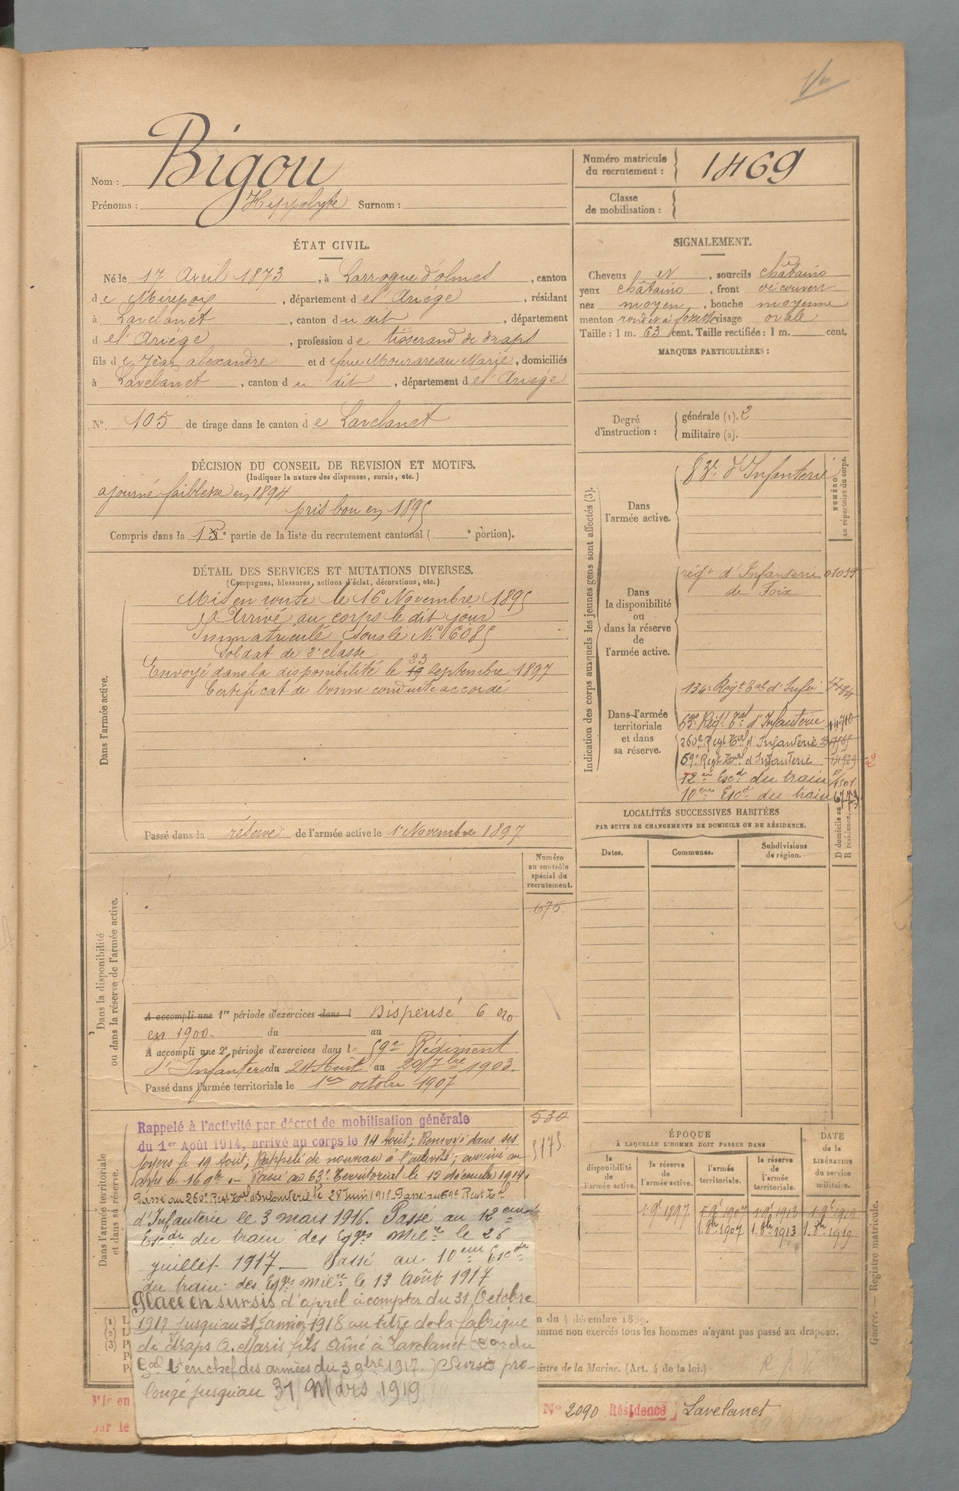 Nom : Bigou
Prénoms : Hippolyte Surnom :
Numéro matricule du recrutement : 1469
Classe de mobilisation :
ÉTAT CIVIL.
Né le 17 Avril 1873, à Larroque d'olmes, canton
de Mirepoix, département de l'Ariège, résidant
à Lavelanet, canton du dit, département
de l'Ariège, profession de tisserand de draps
fils de Jean alexandre et de feue Mounareau Marie, domiciliés
à Lavelanet, canton du dit, département de l'Ariège
N° 105 de tirage dans le canton de Lavelanet
SIGNALEMENT.
Cheveux et, sourcils châtains
yeux châtains, front découvert
nez moyen, bouche moyenne
menton rond, visage ovale
Taille : 1 m. 63 cent. Taille rectifiée : 1 m. cent.
MARQUES PARTICULIÈRES :
Degré d'instruction : générale (1). 2
militaire (2).
DÉCISION DU CONSEIL DE REVISION ET MOTIFS.
(Indiquer la nature des dispenses, sursis, etc.)
ajourné faiblesse en 1894
pris bon en 1895
Compris dans la 1e partie de la liste du recrutement cantonal ( e portion).
DÉTAIL DES SERVICES ET MUTATIONS DIVERSES.
(Campagnes, blessures, actions d'éclat, décorations, etc.)
Dans l'armée active.
Mis en route le 16 Novembre 1895
Arrivé au corps le dit jour
Immatriculé sous le N° 6085
Soldat de 2e classe
Envoyé dans la disponibilité le 23 Septembre 1897
Certificat de bonne conduite accordé
Passé dans la réserve de l'armée active le 1er Novembre 1897
Indication des corps auxquels les jeunes gens sont affectés (3).
NUMÉRO au répertoire du corps.
Dans l'armée active.
83e d'Infanterie
Dans la disponibilité ou dans la réserve de l'armée active.
régt d'Infanterie 01035
de Foix
Dans l'armée territoriale et dans sa réserve.
134e Regt Eal d'Infie
63e Régt Eal d'Infanterie
260e Regt Eal d'Infanterie
59e Regt Eal d'Infanterie
12eme Escon du train
10eme Escon du train
LOCALITÉS SUCCESSIVES HABITÉES
PAR SUITE DE CHANGEMENTS DE DOMICILE OU DE RÉSIDENCE.
Dates. Communes. Subdivisions de région. D domicile ou R résidence.
Dans la disponibilité ou dans la réserve de l'armée active.
Numéro au contrôle spécial du recrutement.
675
A accompli une 1re période d'exercices dans l Dispensé 6 0/0
en 1900. du au
A accompli une 2e période d'exercices dans le 59e Régiment
d'Infanterie du 24 Août au 20 7bre 1903.
Passé dans l'armée territoriale le 1er octobre 1907
Dans l'armée territoriale et dans sa réserve.
530
5175
Rappelé à l'activité par décret de mobilisation générale
du 1er Août 1914, arrivé au corps le 14 Août; Renvoyé dans ses
foyers le 19 Août; Rappelé de nouveau à l'activité; arrivé au
corps le 16 9bre. Passé au 63e Territorial le 12 décembre 1914.
Passé au 260e Regt Eal d'Infanterie le 28 Juin 1915 Passé au 59e Regt Eal
d'Infanterie le 3 mars 1916. Passé au 12eme
Escon du train des Eqges Milres le 26
juillet 1917. Passé au 10eme Escon
du train des Eqges Milres le 13 Août 1917
Placé en sursis d'appel à compter du 31 Octobre
1917 jusqu'au 31 Janvier 1918 au titre de la fabrique
de draps A. Maris fils aîné à Lavelanet (Don du
Gal Ct en chef des armées du 3 9bre 1917.) Sursis pro-
longé jusqu'au 31 Mars 1919
ÉPOQUE
À LAQUELLE L'HOMME DOIT PASSER DANS
DATE DE LA LIBÉRATION du service militaire.
la disponibilité de l'armée active. la réserve de l'armée active. l'armée territoriale. la réserve de l'armée territoriale.
1 9bre 1897 1 9bre 1907 1 9bre 1913 1 9bre 1919
1. 8bre 1907 1. 8bre 1913 1. 8bre 1919
(1)
(2)
(3)
omme non exercés tous les hommes n'ayant pas passé au drapeau.
istre de la Marine. (Art. 4 de la loi.)
Guerre. — Registre matricule.
Mis en
N° 2090 Résidence Lavelanet